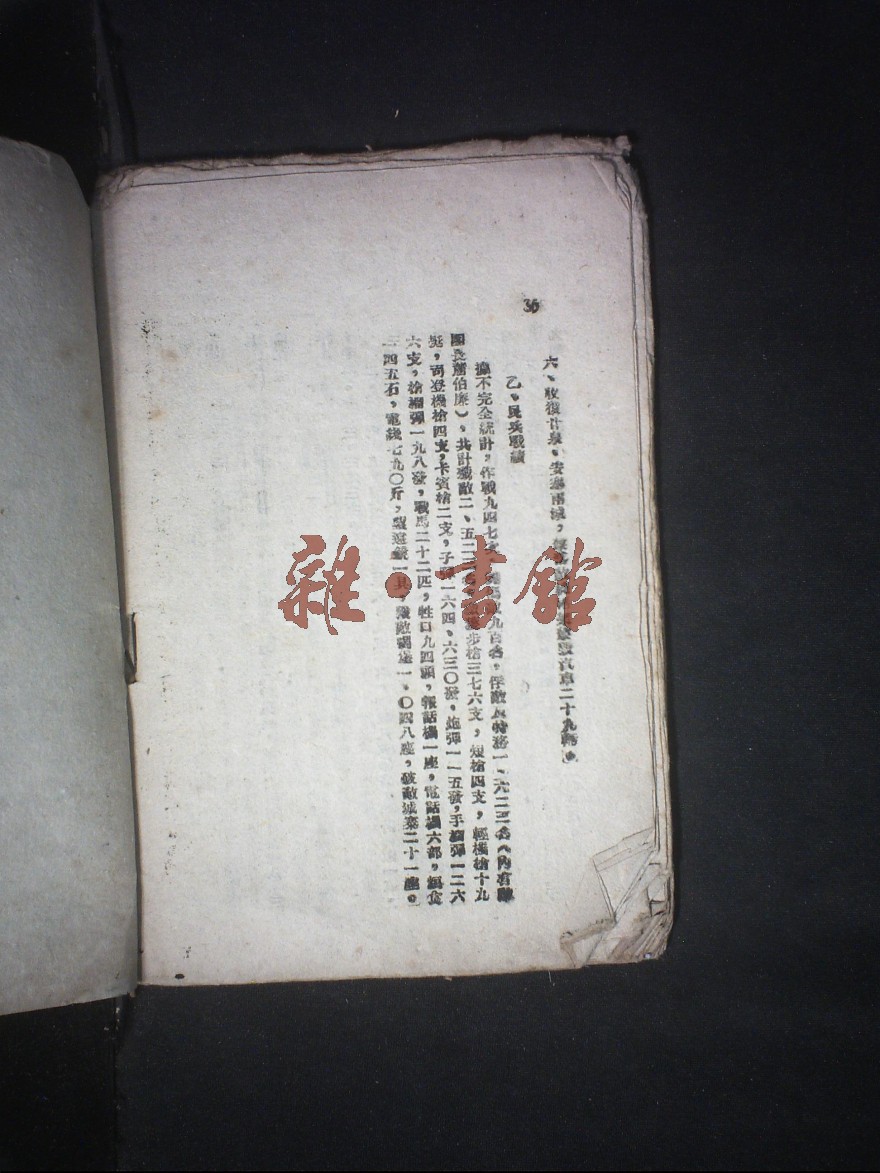 36
六、收復甘泉、安塞兩城，汽車二十九輛。
乙、民兵戰績
據不完全統計，作戰九四七次，九百名，俘敵及特務一、六二二名（內有聯
團長蕭伯廉），共計殲敵二、五二二步槍三七六支，短槍四支，輕機槍十九
挺，司登機槍四支，卡賓槍二支，子彈一六四、六三〇發，炮彈一一五發，手榴彈一二六
六支，槍榴彈一九八發，戰馬二十二匹，牲口九四頭，報話機一座，電話機六部，糧食
三四五石，電綫七九〇斤，望遠鏡一具，毀敵碉堡一、〇四八座，破敵城寨二十一座。
雜·書館